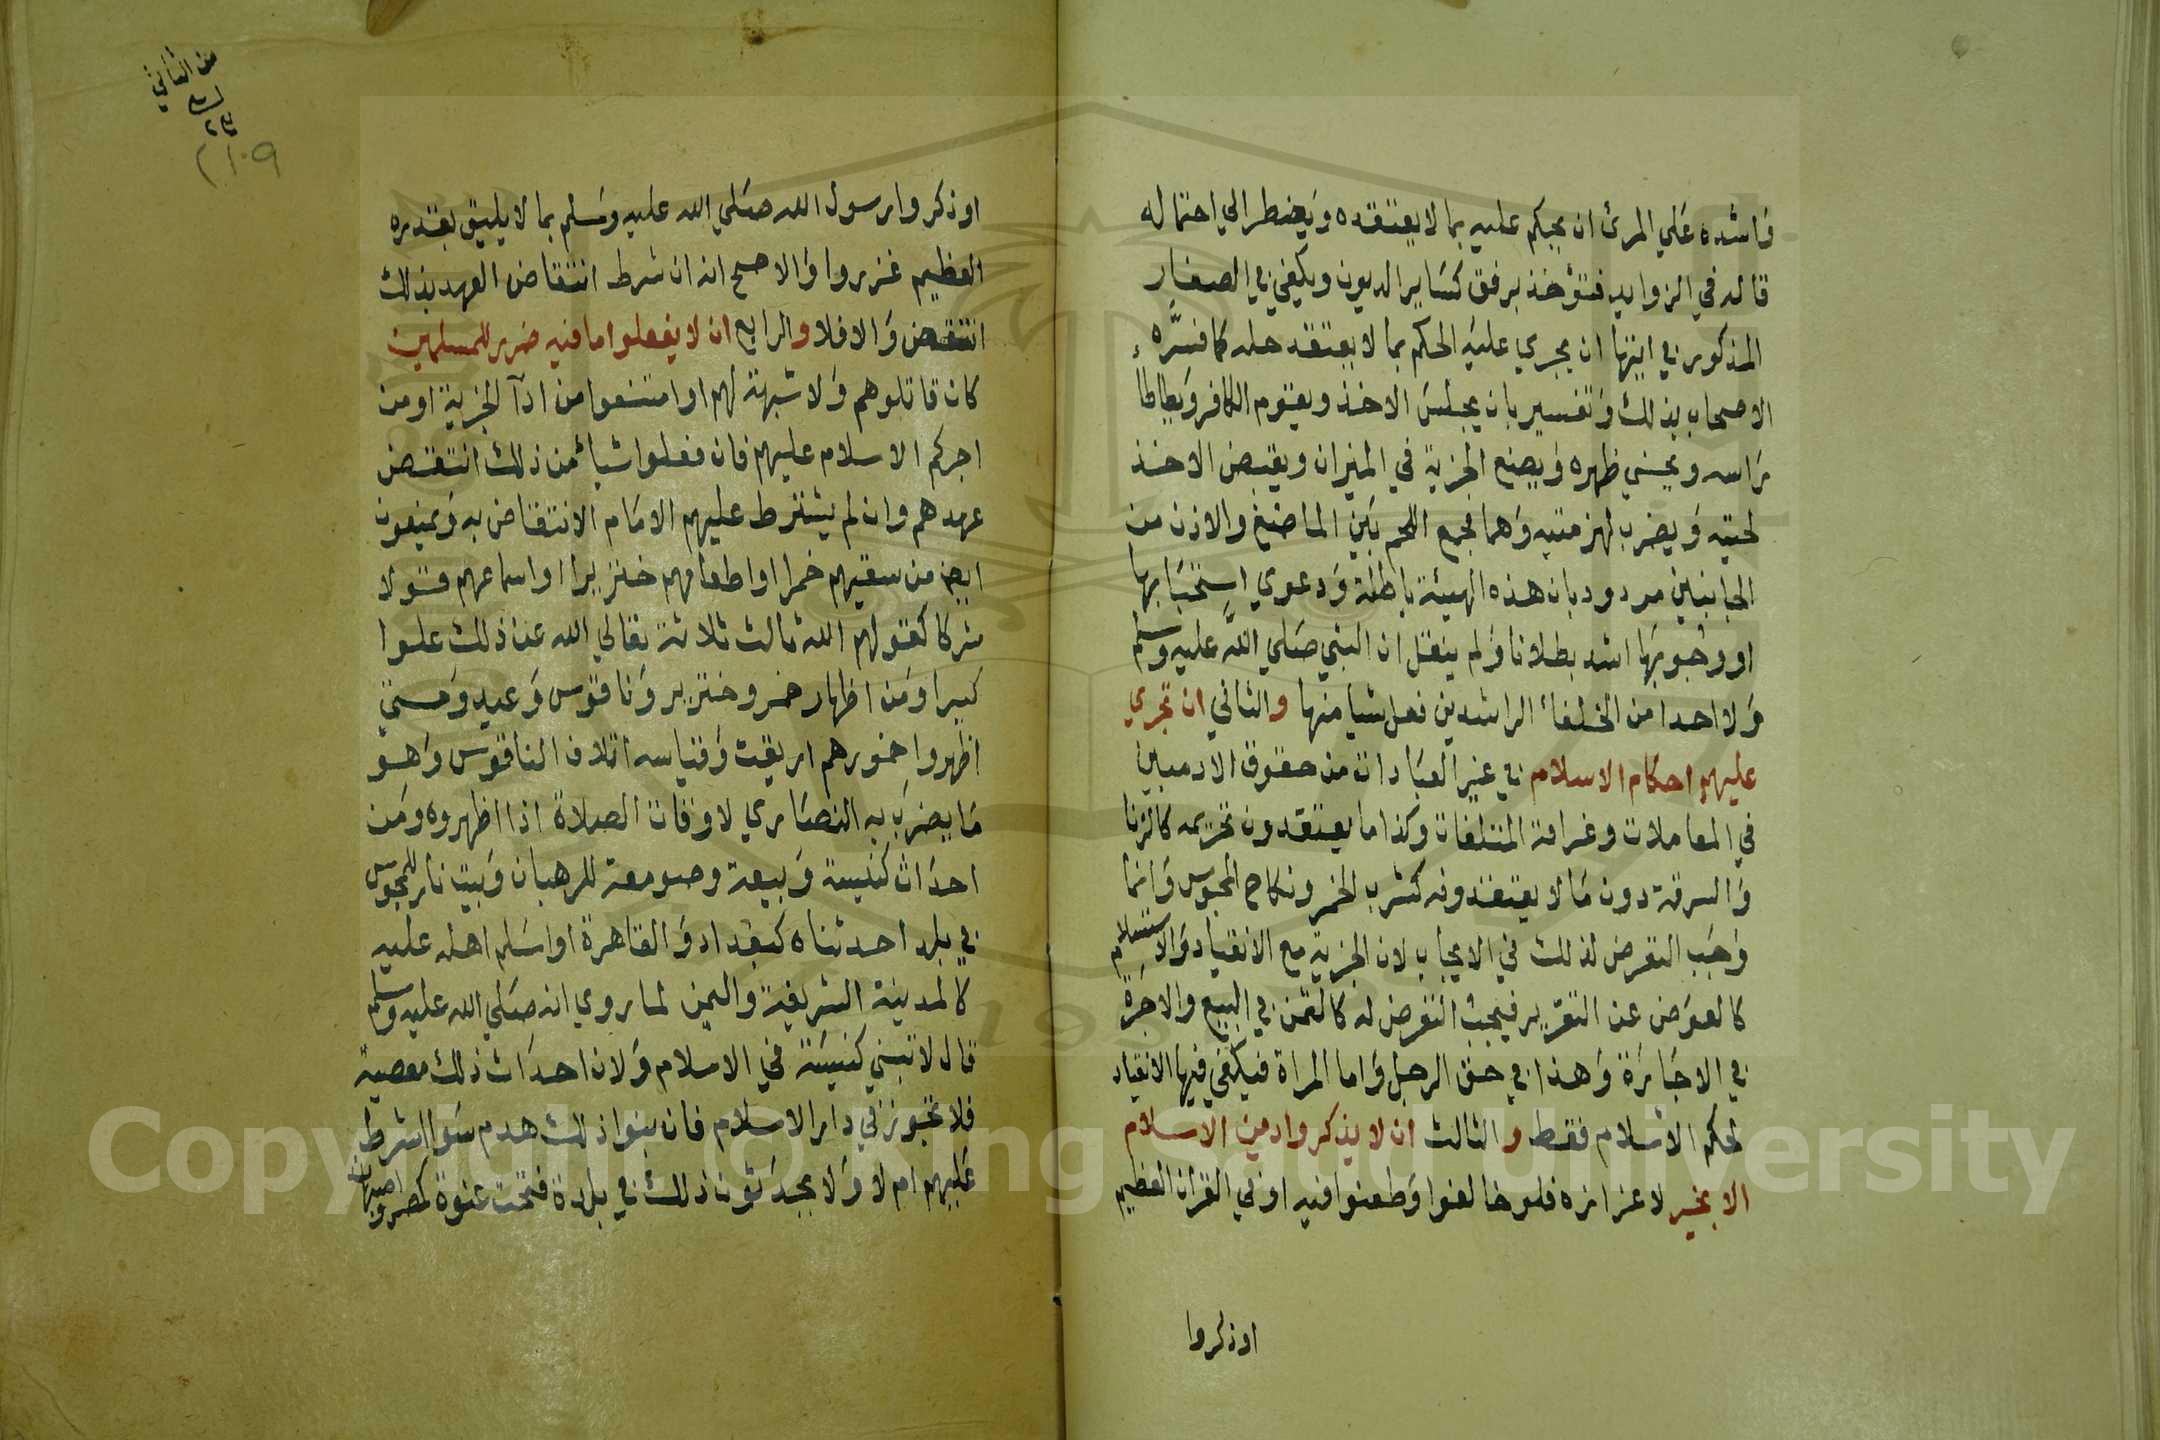 واشده علي المرئ ان يحكم عليه بما لا يعتقده ويضطر الي احتماله
قاله في الزوايد فتؤخذ برفق كساير الديون ويكفي في الصغار
المذكور في ايتها ان يجري عليه الحكم بما لا يعتقد حله كما فسَّره
الاصحاب بذلك وتفسير بان يجلس الاخذ ويقوم الكافر ويطاطأ
راسه ويحني ظهره ويضع الجزية في الميزان ويقبض الاخذ
لحيته ويضرب لهزمتيه وهما مجمع اللحم بين الماضغ والاذن من
الجانبين مردود بان هذه الهيئة باطلة ودعوي استحبابها
او وجوبها اشد بطلانا ولم ينقل ان النبي صلي الله عليه وسلم
ولا احدا من الخلفاء الراشدين فعل شيا منها والثاني ان تجري
عليهم احكام الاسلام في غير العبادات من حقوق الادميين
في المعاملات وغرامة المتلفات وكذا ما يعتقدون تحريمه كالزنا
والسرقة دون ما لا يعتقدونه كشرب الخمر ونكاح المجوس وانما
وجب التعرض لذلك في الايجاب لان الجزية مع الانقياد والاستسلام
كالعوض عن التقرير فيجب التعرض له كالثمن في البيع والاجرة
في الاجارة وهذا في حق الرجل واما المراة فيكفي فيها الانقياد
لحكم الاسلام فقط والثالث ان لا يذكروا دين الاسلام
الا بخير لاعزازه فلو خالفوا وطعنوا فيه او في القران العظيم
او ذكروا
من الثاني
٢١٠٩
او ذكروا رسول الله صلي الله عليه وسلم بما لا يليق بقدره
العظيم عزروا والاصح انه ان شرط انتقاض العهد بذلك
انتقض والا فلا والرابع ان لا يفعلوا ما فيه ضرر للمسلمين
كان قاتلوهم ولا شبهة لهم او امتنعوا من ادآ الجزية او من
اجر حكم الاسلام عليهم فان فعلوا شياء من ذلك انتقض
عهدهم وان لم يشترط عليهم الامام الانتقاض به ويمنعون
ايض من سقيهم خمرا او اطعامهم خنزيرا او اسماعهم قولا
شركا كقولهم الله ثالث ثلاثة تعالي الله عن ذلك علوا
كبيرا ومن اظهار خمر وخنزير وناقوس وعيد ومتي
اظهروا خمورهم اريقت وقياسه اتلاف الناقوس وهو
ما يضرب به النصاري لاوقات الصلاة اذا اظهروه ومن
احداث كنيسة وبيعة وصومعة للرهبان وبيت نار للمجوس
في بلد احدثناه كبغداد والقاهرة او اسلم اهله عليه
كالمدينة الشريفة واليمن لما روي انه صلي الله عليه وسلم
قال لا تبني كنيسة في الاسلام ولان احداث ذلك معصية
فلا تجوز في دار الاسلام فان بنوا ذلك هدم سوا الشرط
عليهم ام لا ولا يحدثون ذلك في بلدة فتحت عنوة كمصر واصبهان
Copyright © King Saud University